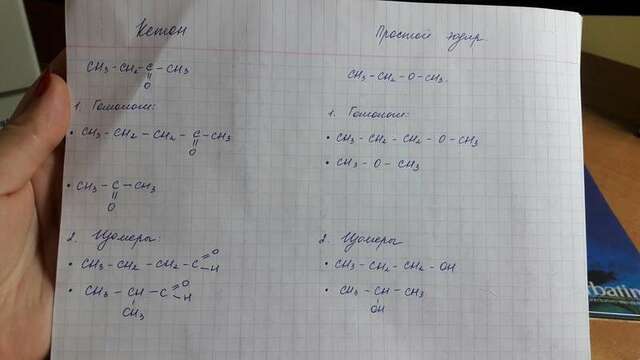 Кетон
CH3 - CH2 - C - CH3
||
O
1. Гомологи:
• CH3 - CH2 - CH2 - C - CH3
||
O
• CH3 - C - CH3
||
O
2. Изомеры:
• CH3 - CH2 - CH2 - C = O
- H
• CH3 - CH - C = O
- H
CH3
Простой эфир.
CH3 - CH2 - O - CH3.
1. Гомологи:
• CH3 - CH2 - CH2 - O - CH3
• CH3 - O - CH3
2. Изомеры
• CH3 - CH2 - CH2 - OH
• CH3 - CH - CH3
OH
rbatim